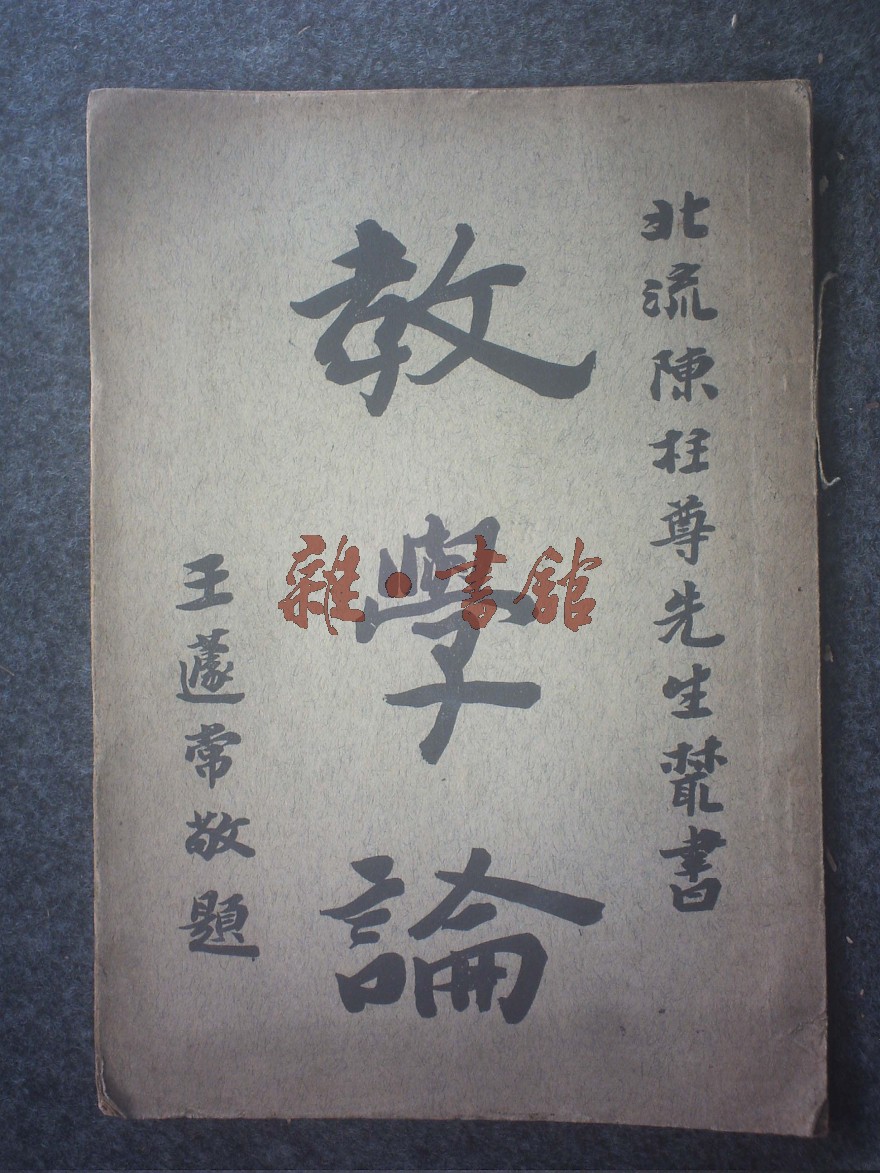 北流陳柱尊先生叢書
教學論
王蘧常敬題
雜·書館